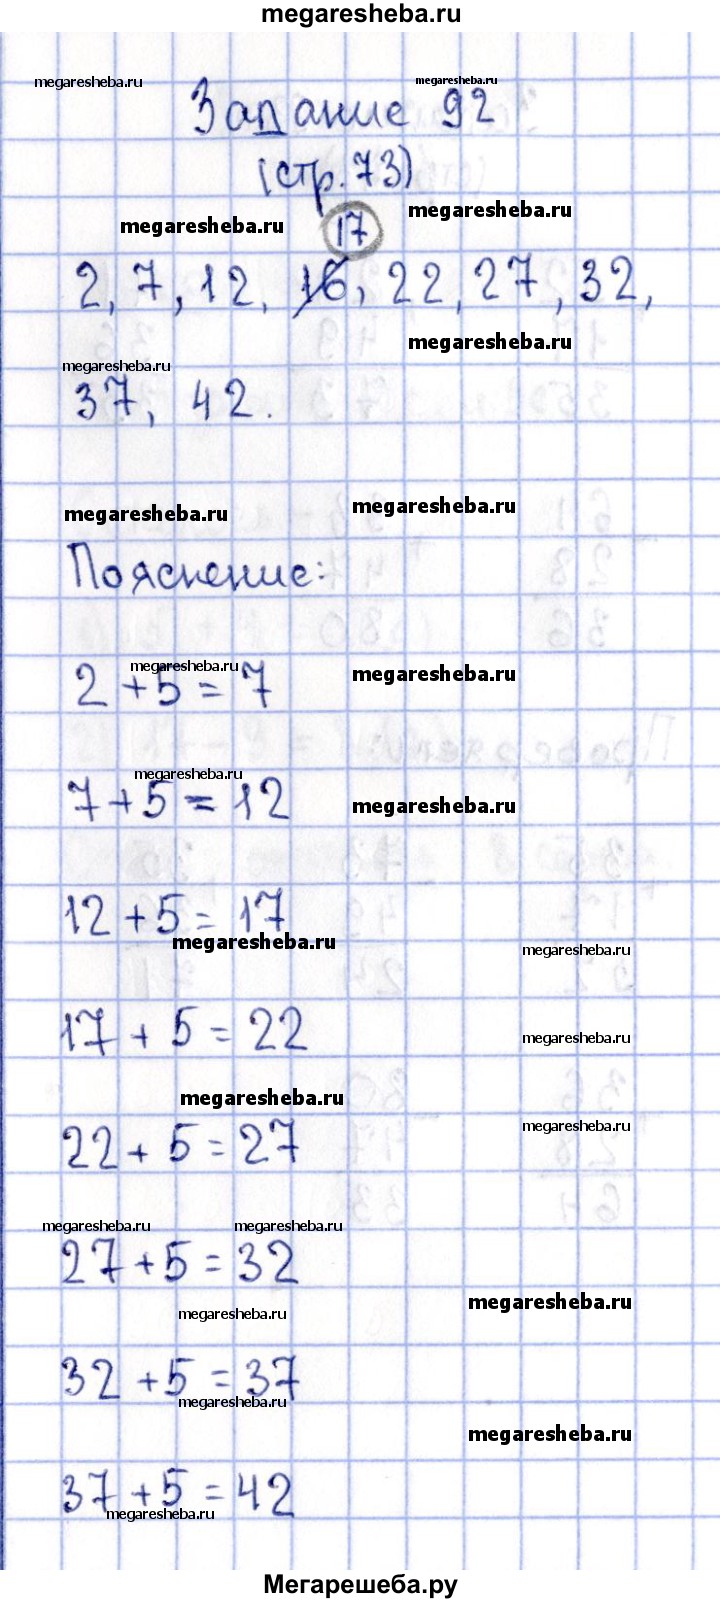 megaresheba.ru
megaresheba.ru megaresheba.ru
Задание 92
(стр. 73)
megaresheba.ru 17 megaresheba.ru
2, 7, 12, 16, 22, 27, 32,
megaresheba.ru
megaresheba.ru
37, 42.
megaresheba.ru megaresheba.ru
Пояснение:
megaresheba.ru megaresheba.ru
2 + 5 = 7
megaresheba.ru
7 + 5 = 12 megaresheba.ru
12 + 5 = 17
megaresheba.ru megaresheba.ru
17 + 5 = 22 megaresheba.ru
megaresheba.ru megaresheba.ru
22 + 5 = 27
megaresheba.ru megaresheba.ru
27 + 5 = 32
megaresheba.ru megaresheba.ru
32 + 5 = 37
megaresheba.ru megaresheba.ru
37 + 5 = 42
megaresheba.ru
Мегарешеба.ру